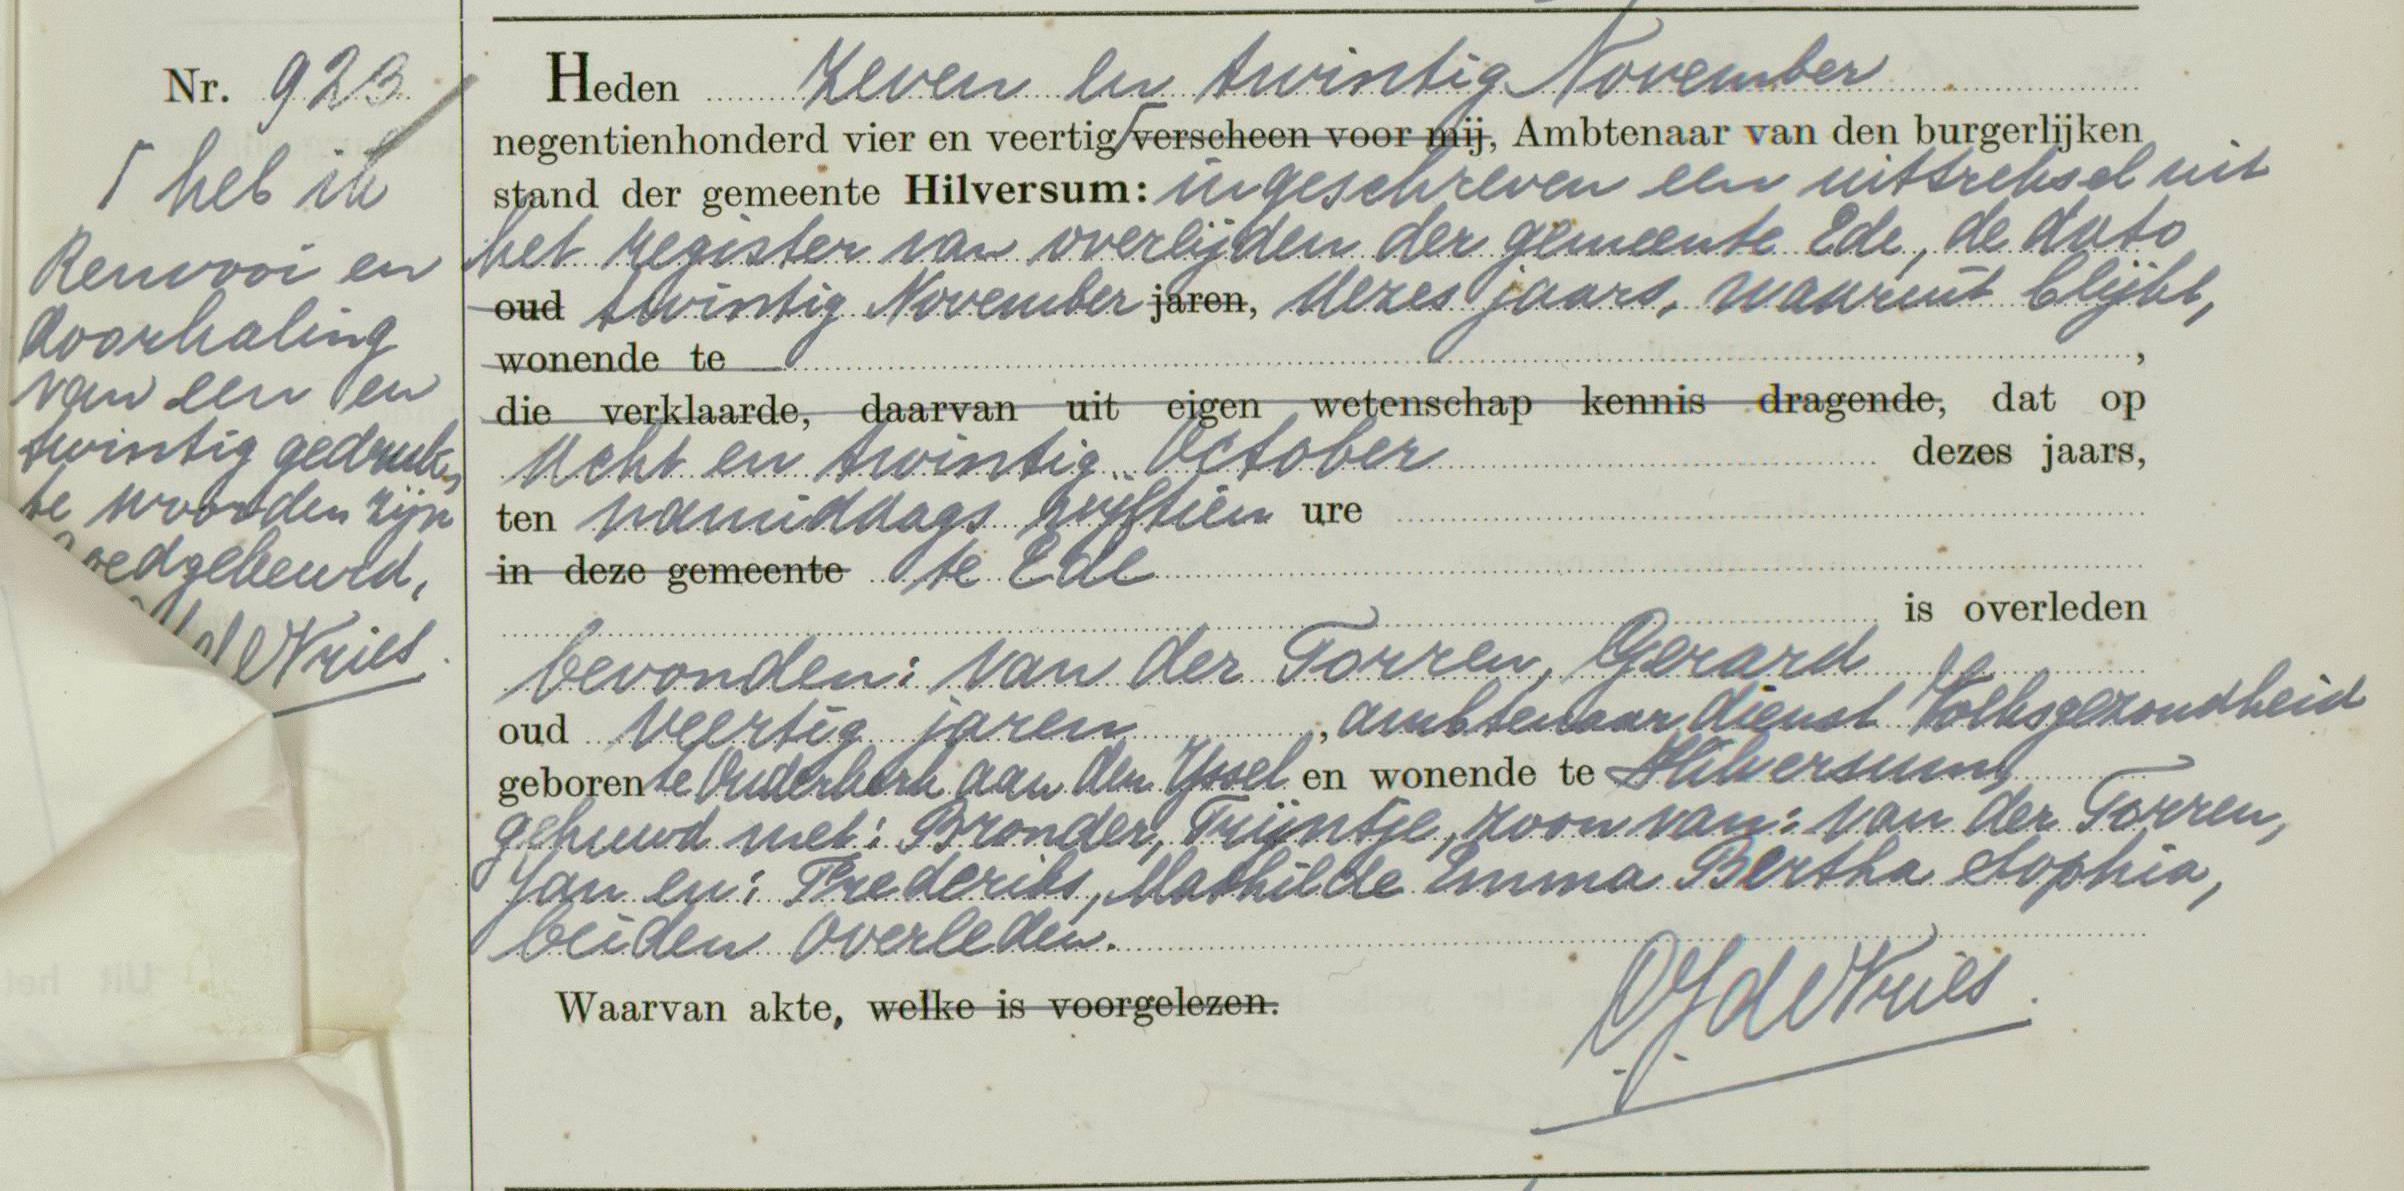 Nr. 923
Γ heb ik
Renvooi en
doorhaling
van een en
twintig gedruk-
te woorden zijn
goedgekeurd,
de Vries
Heden zeven en twintig November
negentienhonderd vier en veertig Γ verscheen voor mij, Ambtenaar van den burgerlijken
stand der gemeente Hilversum: ingeschreven een uittreksel uit
het register van overlijden der gemeente Ede, de dato
oud twintig November jaren, dezes jaars, waaruit blijkt,
wonende te ,
die verklaarde, daarvan uit eigen wetenschap kennis dragende, dat op
Acht en twintig October dezes jaars,
ten namiddags vijftien ure
in deze gemeente te Ede
is overleden
bevonden: van der Torren, Gerard
oud veertig jaren , ambtenaar dienst Volksgezondheid
geboren te Ouderkerk aan den IJssel en wonende te Hilversum,
gehuwd met: Bronder, Trijntje, zoon van: van der Torren,
Jan en: Frederiks, Mathilde Emma Bertha Sophia,
beiden overleden.
Waarvan akte, welke is voorgelezen.
de Vries